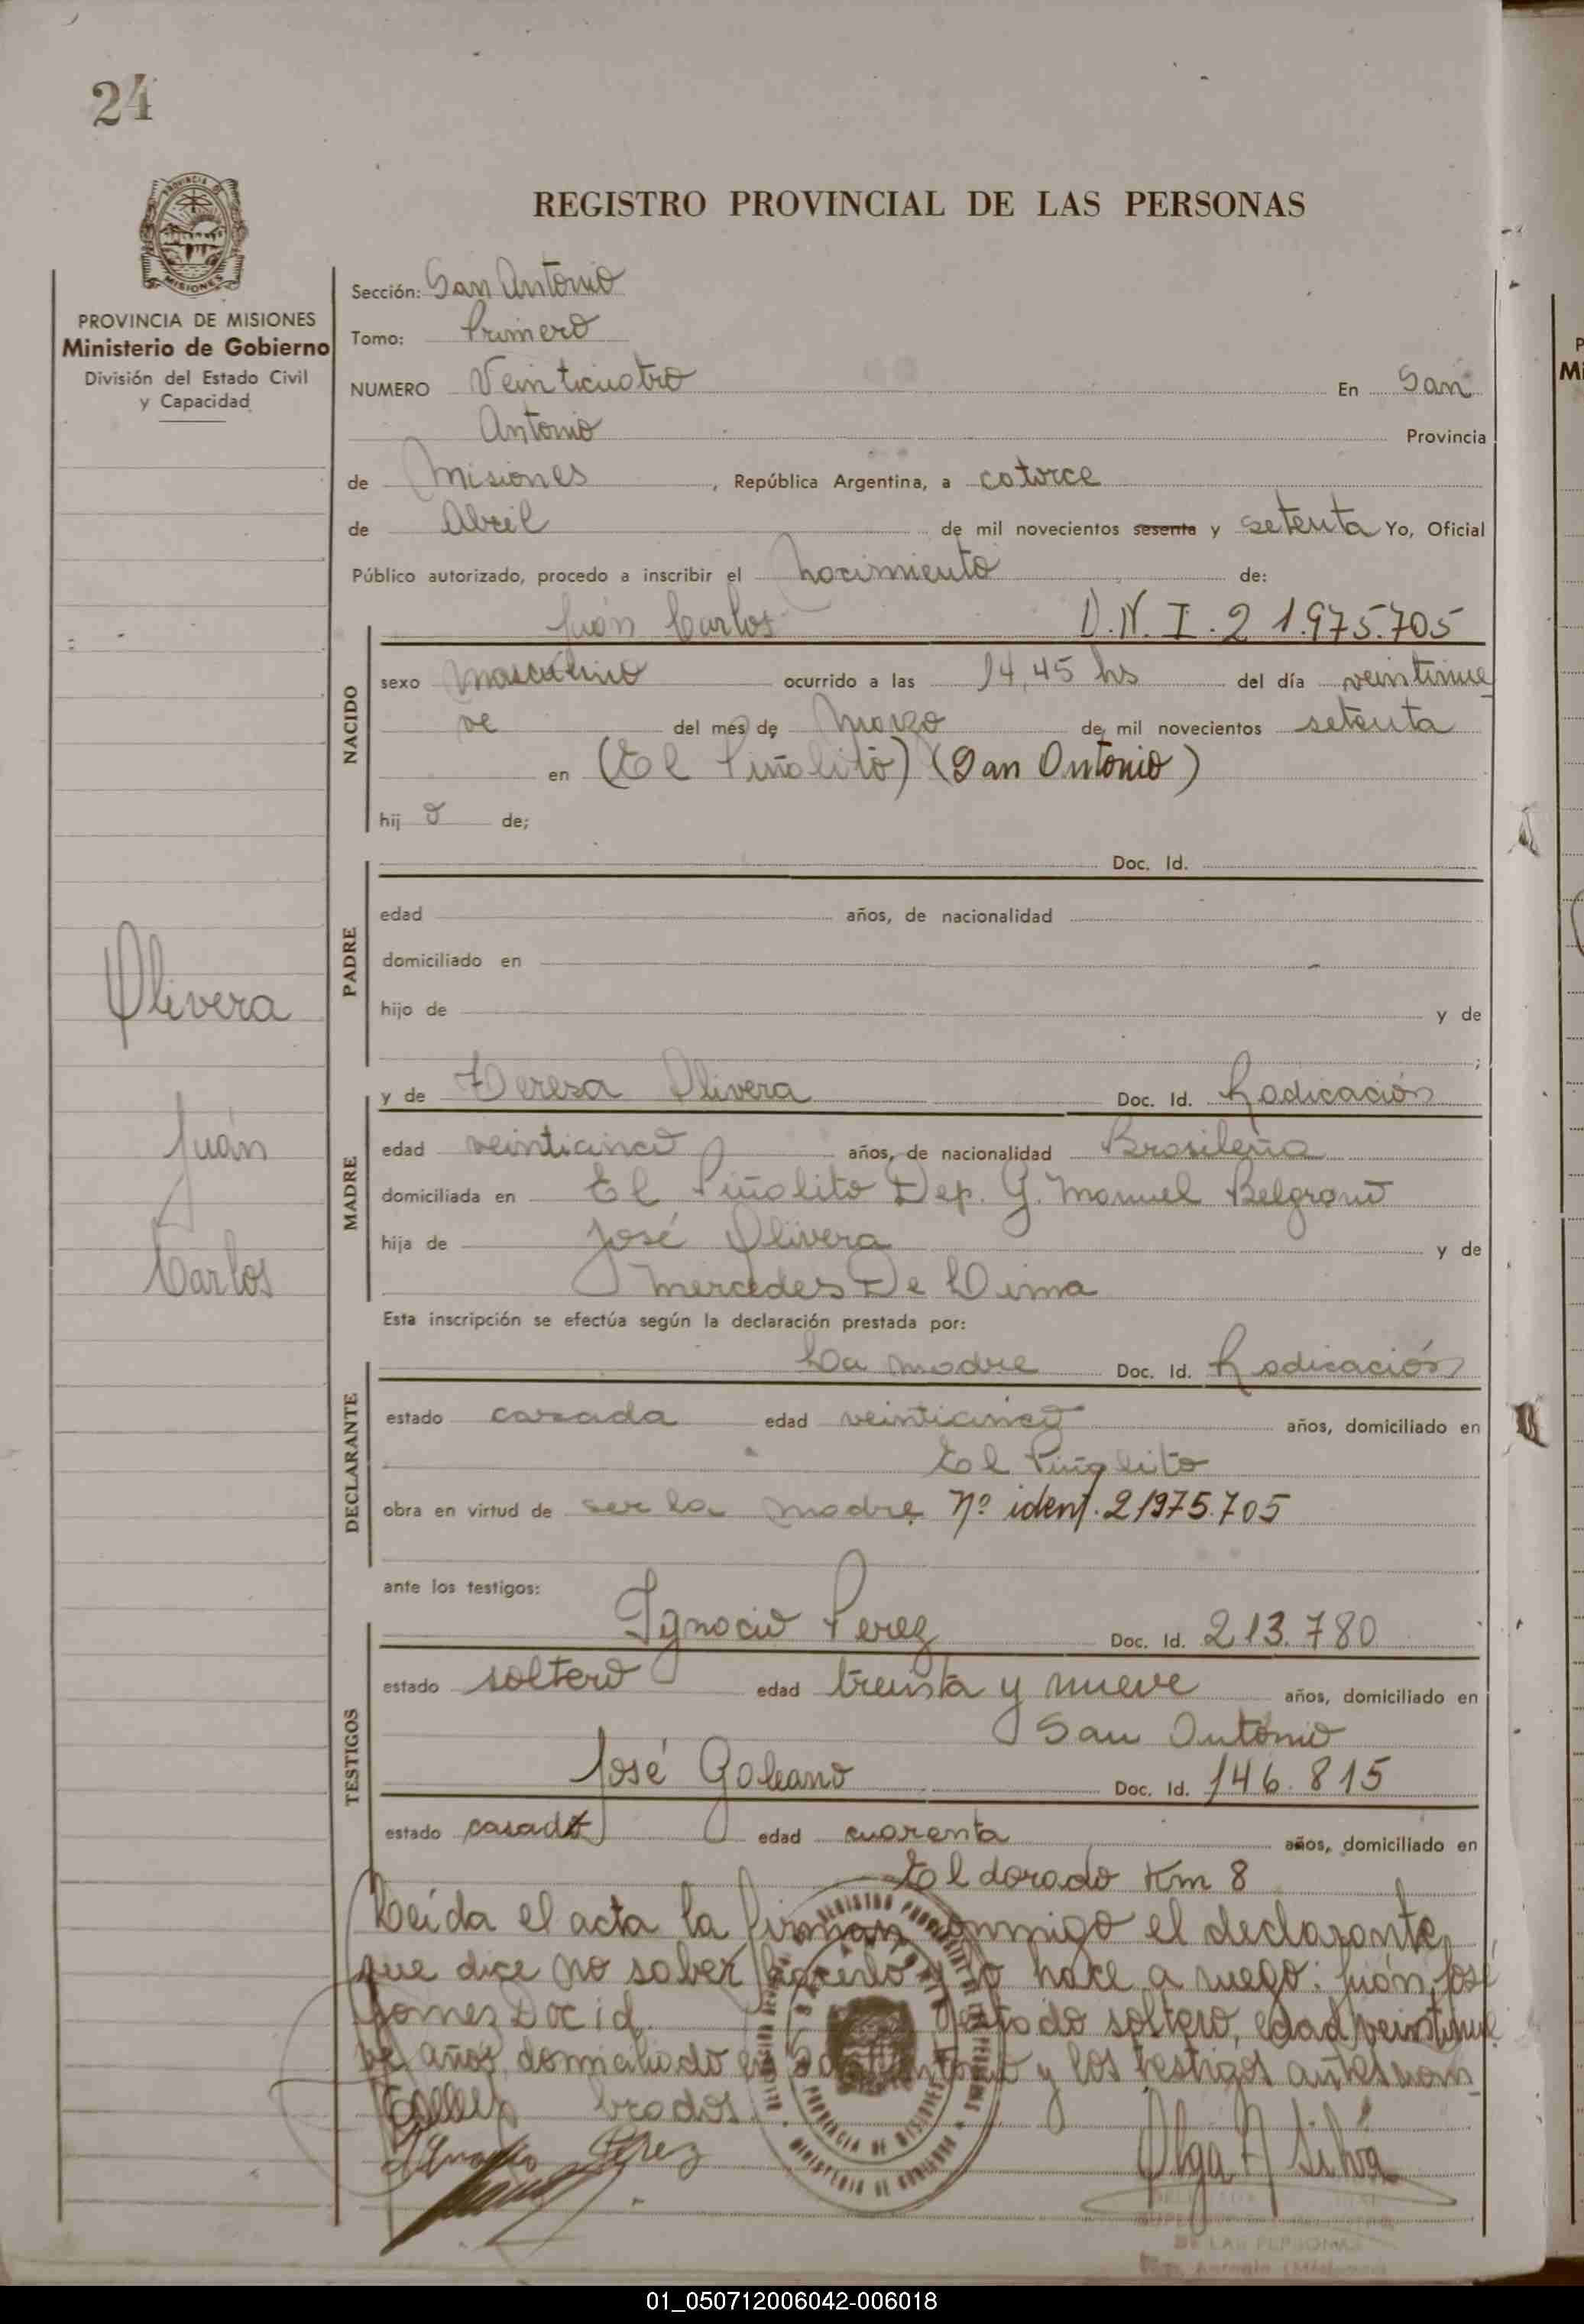 24
REGISTRO PROVINCIAL DE LAS PERSONAS
PROVINCIA DE MISIONES
Ministerio de Gobierno
División del Estado Civil
y Capacidad
Sección: San Antonio
Tomo: Primero
NUMERO Veinticuatro En San
Antonio Provincia
de Misiones, República Argentina, a catorce
de Abril de mil novecientos sesenta y setenta Yo, Oficial
Público autorizado, procedo a inscribir el nacimiento de:
Juán Carlos D.N.I. 21.975.705
NACIDO
sexo masculino ocurrido a las 14,45 hs del día veintinue
ve del mes de marzo de mil novecientos setenta
en (El Piñalito) (San Antonio)
hij o de;
PADRE
Doc. Id.
edad años, de nacionalidad
domiciliado en
hijo de y de
;
Olivera
Juán
Carlos
MADRE
y de Teresa Olivera Doc. Id. Radicación
edad veinticinco años, de nacionalidad Brasileña
domiciliada en El Piñalito Dep. G. Manuel Belgrano
hija de José Olivera y de
Mercedes De Lima
Esta inscripción se efectúa según la declaración prestada por:
DECLARANTE
La madre Doc. Id. Radicación
estado casada edad veinticinco años, domiciliado en
El Piñalito
obra en virtud de ser la madre Nº ident. 21975.705
ante los testigos:
TESTIGOS
Ignacio Perez Doc. Id. 213.780
estado soltero edad treinta y nueve años, domiciliado en
San Antonio
José Galeano Doc. Id. 146.815
estado casado edad cuarenta años, domiciliado en
Eldorado Km 8
Leída el acta la firman conmigo el declarante,
que dice no saber hacerlo y lo hace a ruego: Juán José
Gomez Doc id. estado soltero, edad veintinue
ve años, domiciliado en San Antonio y los testigos antes nom
brados.
Ignacio Perez
Olga A Silva
DE LAS PERSONAS
01_050712006042-006018